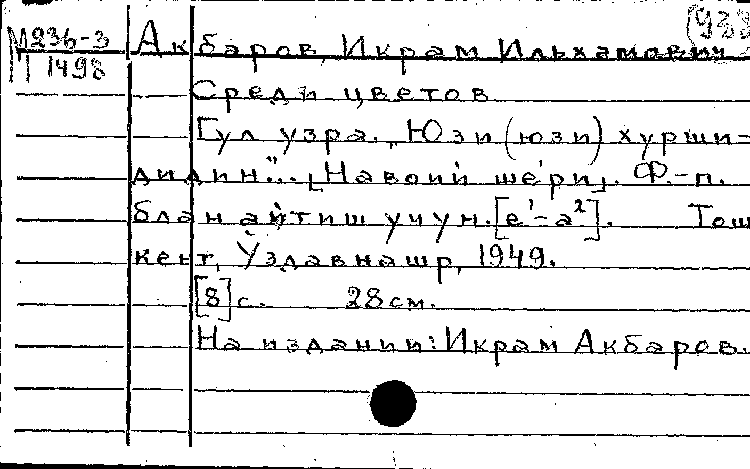 (933
М236-3 Акбаров, Икрам Ильхамович
М 1498
Среди цветов
Гул узра. „Юзи (юзи) хурши-
дидин"... [Навоий шеъри]. Ф.-п.
блан айтиш учун. [e¹-a²]. Тош
кент, Ўздавнашр, 1949.
[8] с. 28 см.
На издании: Икрам Акбаров.